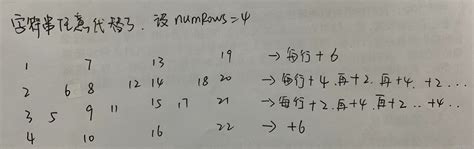 字符串任意代替了. 设 numRows=4
1 7 13 19 → 每行+6
2 6 8 12 14 18 20 → 每行+4.再+2.再+4.+2...
3 5 9 11 15 17 21 → 每行+2.再+4.再+2..+4..
4 10 16 22 → +6